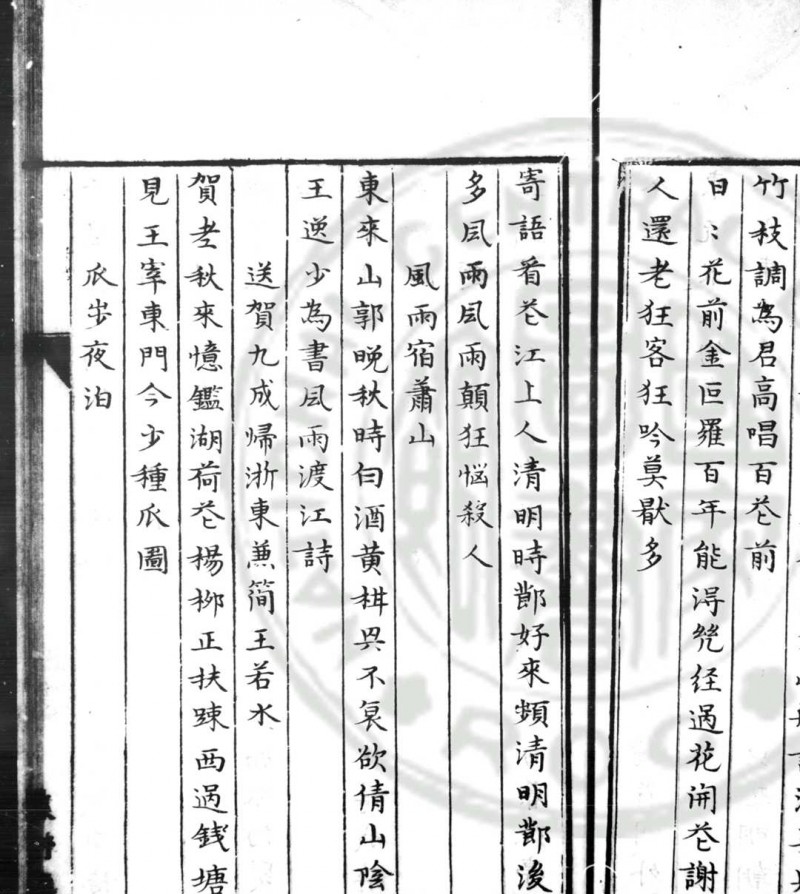 竹枝調為君高唱百花前
日〻花前金叵羅百年能得幾經過花開花謝
人還老狂客狂吟莫厭多
寄語看花江上人清明時節好來頻清明節後
多風雨風雨顛狂惱殺人
風雨宿蕭山
東來山郭晚秋時白酒黃柑興不衰欲倩山陰
王逸少為書風雨渡江詩
送賀九成歸浙東兼簡王若水
賀老秋來憶鑑湖荷花楊柳正扶踈西過錢塘
見王宰東門今少種瓜圖
瓜步夜泊